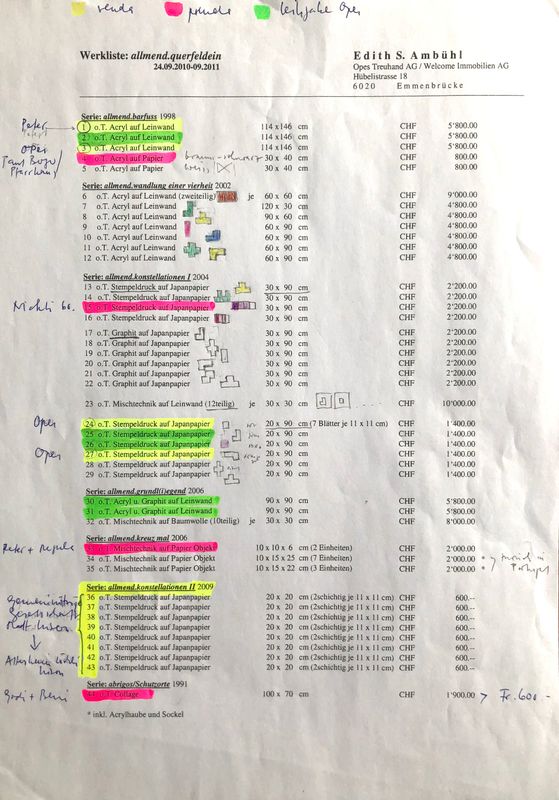 Werkliste: allmend.querfeldein
24.09.2010-09.2011
Edith S. Ambühl
Opes Treuhand AG / Welcome Immobilien AG
Hübelistrasse 18
6020 Emmenbrücke
Serie: allmend.barfuss 1998
Peter
1 o.T. Acryl auf Leinwand 114 x 146 cm CHF 5'800.00
2 o.T. Acryl auf Leinwand 114 x 146 cm CHF 5'800.00
Opes
3 o.T. Acryl auf Leinwand 114 x 146 cm CHF 5'800.00
4 o.T. Acryl auf Papier 30 x 40 cm CHF 800.00
5 o.T. Acryl auf Papier weiss 30 x 40 cm CHF 800.00
Serie: allmend.wandlung einer vierheit 2002
6 o.T. Acryl auf Leinwand (zweiteilig) je 60 x 60 cm CHF 9'000.00
7 o.T. Acryl auf Leinwand 120 x 30 cm CHF 4'800.00
8 o.T. Acryl auf Leinwand 90 x 60 cm CHF 4'800.00
9 o.T. Acryl auf Leinwand 60 x 90 cm CHF 4'800.00
10 o.T. Acryl auf Leinwand 60 x 90 cm CHF 4'800.00
11 o.T. Acryl auf Leinwand 60 x 90 cm CHF 4'800.00
12 o.T. Acryl auf Leinwand 60 x 90 cm CHF 4'800.00
Serie: allmend.konstellationen I 2004
13 o.T. Stempeldruck auf Japanpapier 30 x 90 cm CHF 2'200.00
14 o.T. Stempeldruck auf Japanpapier 30 x 90 cm CHF 2'200.00
15 o.T. Stempeldruck auf Japanpapier 30 x 90 cm CHF 2'200.00
16 o.T. Stempeldruck auf Japanpapier 30 x 90 cm CHF 2'200.00
17 o.T. Graphit auf Japanpapier 30 x 90 cm CHF 2'200.00
18 o.T. Graphit auf Japanpapier 30 x 90 cm CHF 2'200.00
19 o.T. Graphit auf Japanpapier 30 x 90 cm CHF 2'200.00
20 o.T. Graphit auf Japanpapier 30 x 90 cm CHF 2'200.00
21 o.T. Graphit auf Japanpapier 30 x 90 cm CHF 2'200.00
22 o.T. Graphit auf Japanpapier 30 x 90 cm CHF 2'200.00
23 o.T. Mischtechnik auf Leinwand (12teilig) je 30 x 30 cm CHF 10'000.00
Opes
24 o.T. Stempeldruck auf Japanpapier 20 x 90 cm (7 Blätter je 11 x 11 cm) CHF 1'400.00
25 o.T. Stempeldruck auf Japanpapier 20 x 90 cm CHF 1'400.00
26 o.T. Stempeldruck auf Japanpapier 20 x 90 cm CHF 1'400.00
Opes
27 o.T. Stempeldruck auf Japanpapier 20 x 90 cm CHF 1'400.00
28 o.T. Stempeldruck auf Japanpapier 20 x 90 cm CHF 1'400.00
29 o.T. Stempeldruck auf Japanpapier 20 x 90 cm CHF 1'400.00
Serie: allmend.grundl(i)egend 2006
30 o.T. Acryl u. Graphit auf Leinwand 90 x 90 cm CHF 5'800.00
31 o.T. Acryl u. Graphit auf Leinwand 90 x 90 cm CHF 5'800.00
32 o.T. Mischtechnik auf Baumwolle (10teilig) je 30 x 30 cm CHF 8'000.00
Serie: allmend.kreuz mal 2006
Peter + Regula
33 o.T. Mischtechnik auf Papier Objekt 10 x 10 x 6 cm (2 Einheiten) CHF 2'000.00
34 o.T. Mischtechnik auf Papier Objekt 10 x 15 x 25 cm (7 Einheiten) CHF 2'000.00 *
35 o.T. Mischtechnik auf Papier Objekt 10 x 15 x 22 cm (3 Einheiten) CHF 2'000.00 *
Serie: allmend.konstellationen II 2009
36 o.T. Stempeldruck auf Japanpapier 20 x 20 cm (2schichtig je 11 x 11 cm) CHF 600.--
37 o.T. Stempeldruck auf Japanpapier 20 x 20 cm (2schichtig je 11 x 11 cm) CHF 600.--
38 o.T. Stempeldruck auf Japanpapier 20 x 20 cm (2schichtig je 11 x 11 cm) CHF 600.--
39 o.T. Stempeldruck auf Japanpapier 20 x 20 cm (2schichtig je 11 x 11 cm) CHF 600.--
40 o.T. Stempeldruck auf Japanpapier 20 x 20 cm (2schichtig je 11 x 11 cm) CHF 600.--
41 o.T. Stempeldruck auf Japanpapier 20 x 20 cm (2schichtig je 11 x 11 cm) CHF 600.--
42 o.T. Stempeldruck auf Japanpapier 20 x 20 cm (2schichtig je 11 x 11 cm) CHF 600.--
43 o.T. Stempeldruck auf Japanpapier 20 x 20 cm (2schichtig je 11 x 11 cm) CHF 600.--
Serie: abrigos/Schutzorte 1991
44 o.T. Collage 100 x 70 cm CHF 1'900.00 > Fr. 600.-
* inkl. Acrylhaube und Sockel